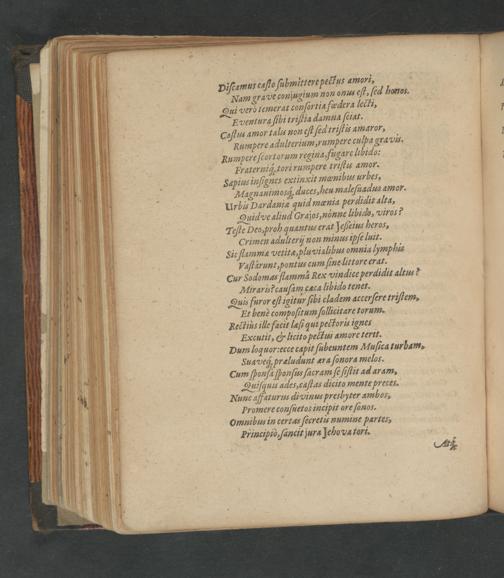 Discamus casto submittere pectus amori,
Nam grave conjugium non onus est, sed honos.
Qui verò temerat consortia fœdera lecti,
Eventura sibi tristia damna sciat.
Castus amor talis non est sed tristis amaror,
Rumpere adulterium, rumpere culpa gravis.
Rumpere scortorum regina, fugare libido:
Fraterniq́, tori rumpere tristis amor.
Sæpius insignes extinxit mœnibus urbes,
Magnanimosq́, duces, heu malesuadus amor.
Urbis Dardaniæ quid mœnia perdidit alta,
Quidve aliud Grajos, nónne libido, viros?
Teste Deo, proh quantus erat Jesseius heros,
Crimen adulterij non minus ipse luit.
Sic flammæ vetitæ, pluvialibus omnia lymphis
Vastârunt, pontus cum sine littore erat.
Cur Sodomas flammâ Rex vindice perdidit altus?
Miraris? causam cæca libido tenet.
Quis furor est igitur sibi cladem accersere tristem,
Et benè compositum sollicitare torum.
Rectius ille facit læsi qui pectoris ignes
Excutit, & licito pectus amore terit.
Dum loquor: ecce capit subeuntem Musica turbam,
Suaveq́, præludunt æra sonora melos.
Cum sponsa sponsus sacram se sistit ad aram,
Quisquis ades, castas dicito mente preces.
Nunc affaturus divinus presbyter ambos,
Promere consuetos incipit ore sonos.
Omnibus in certas secretis numine partes,
Principiò, sancit jura Jehova tori.
Atq́;